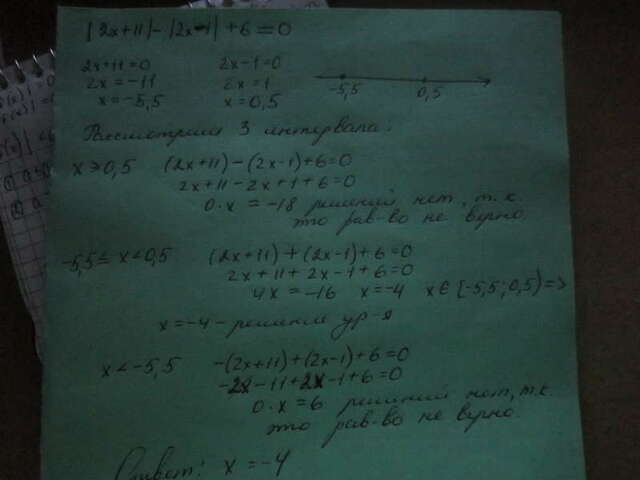 |2x+11|-|2x-1|+6=0
2x+11=0 2x-1=0
2x=-11 2x=1
x=-5,5 x=0,5 -5,5 0,5
Рассмотрим 3 интервала:
x≥0,5 (2x+11)-(2x-1)+6=0
2x+11-2x+1+6=0
0·x=-18 решений нет, т.к.
это рав-во не верно.
-5,5≤x<0,5 (2x+11)+(2x-1)+6=0
2x+11+2x-1+6=0
4x=-16 x=-4 x∈[-5,5;0,5)=>
x=-4 - решение ур-я
x<-5,5 -(2x+11)+(2x-1)+6=0
-2x-11+2x-1+6=0
0·x=6 решений нет, т.к.
это рав-во не верно.
Ответ: x=-4